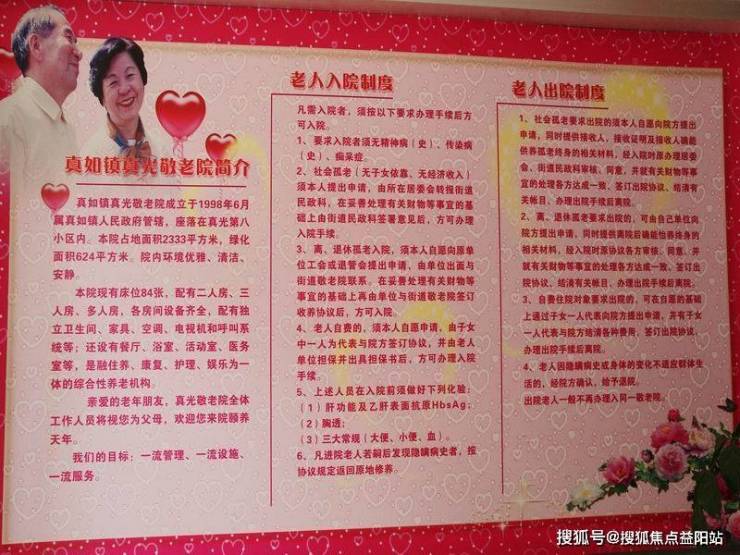 真如镇真光敬老院简介
真如镇真光敬老院成立于1998年6月
属真如镇人民政府管辖，座落在真光第八
小区内。本院占地面积2333平方米，绿化
面积624平方米。院内环境优雅、清洁、
安静。
本院现有床位84张，配有二人房、三
人房、多人房，各房间设备齐全，配有独
立卫生间、家具、空调、电视机和呼叫系
统等；还设有餐厅、浴室、活动室、医务
室等，是融住养、康复、护理、娱乐为一
体的综合性养老机构。
亲爱的老年朋友，真光敬老院全体
工作人员将视您为父母，欢迎您来院颐养
天年。
我们的目标：一流管理、一流设施、
一流服务。
老人入院制度
凡需入院者，须按以下要求办理手续后方
可入院。
1、要求入院者须无精神病（史）、传染病
（史）、痴呆症。
2、社会孤老（无子女依靠、无经济收入）
须本人提出申请，由所在居委会转报街道
民政科，在妥善处理有关财物等事宜的基
础上由街道民政科签署意见后，方可办理
入院手续。
3、离、退休孤老入院，须本人自愿向原单
位工会或退管会提出申请，由单位出面与
街道敬老院联系。在妥善处理有关财物等
事宜的基础上再由单位与街道敬老院签订
收养协议后，方可入院。
4、老人自费的，须本人自愿申请，由子女
中一人为代表与院方签订协议，并由老人
单位担保并出具担保书后，方可办理入院
手续。
5、上述人员在入院前须做好下列化验：
（1）肝功能及乙肝表面抗原HbsAg；
（2）胸透；
（3）三大常规（大便、小便、血）。
6、凡进院老人若嗣后发现隐瞒病史者，按
协议规定返回原地修养。
老人出院制度
1、社会孤老要求出院的须本人自愿向院方提出
申请，同时提供接收人，接收证明及接收人确能
供养孤老终身的相关材料，经入院时原办理居委
会、街道民政科审核、同意，并就有关财物等事
宜的处理各方达成一致，签订出院协议，结清有
关帐目，办理出院手续后离院。
2、离、退休孤老要求出院的，可由自己单位向
院方提出申请，同时提供离院后确能包养终身的
相关材料，经入院时原协议各方审核、同意，并
就有关财物等事宜的处理各方达成一致、签订出
院协议，结清有关帐目，办理出院手续后离院。
3、自费住院对象要求出院的，可在自愿的基础
上通过子女一人代表向院方提出申请，并有子女
一人代表与院方结清各种费用，签订出院协议，
办理出院手续后离院。
4、老人因隐瞒病史或身体的变化不适应群体生
活的，经院方确认，给予退院。
出院老人一般不再办理入同一敬老院。
搜狐号@搜狐焦点益阳站